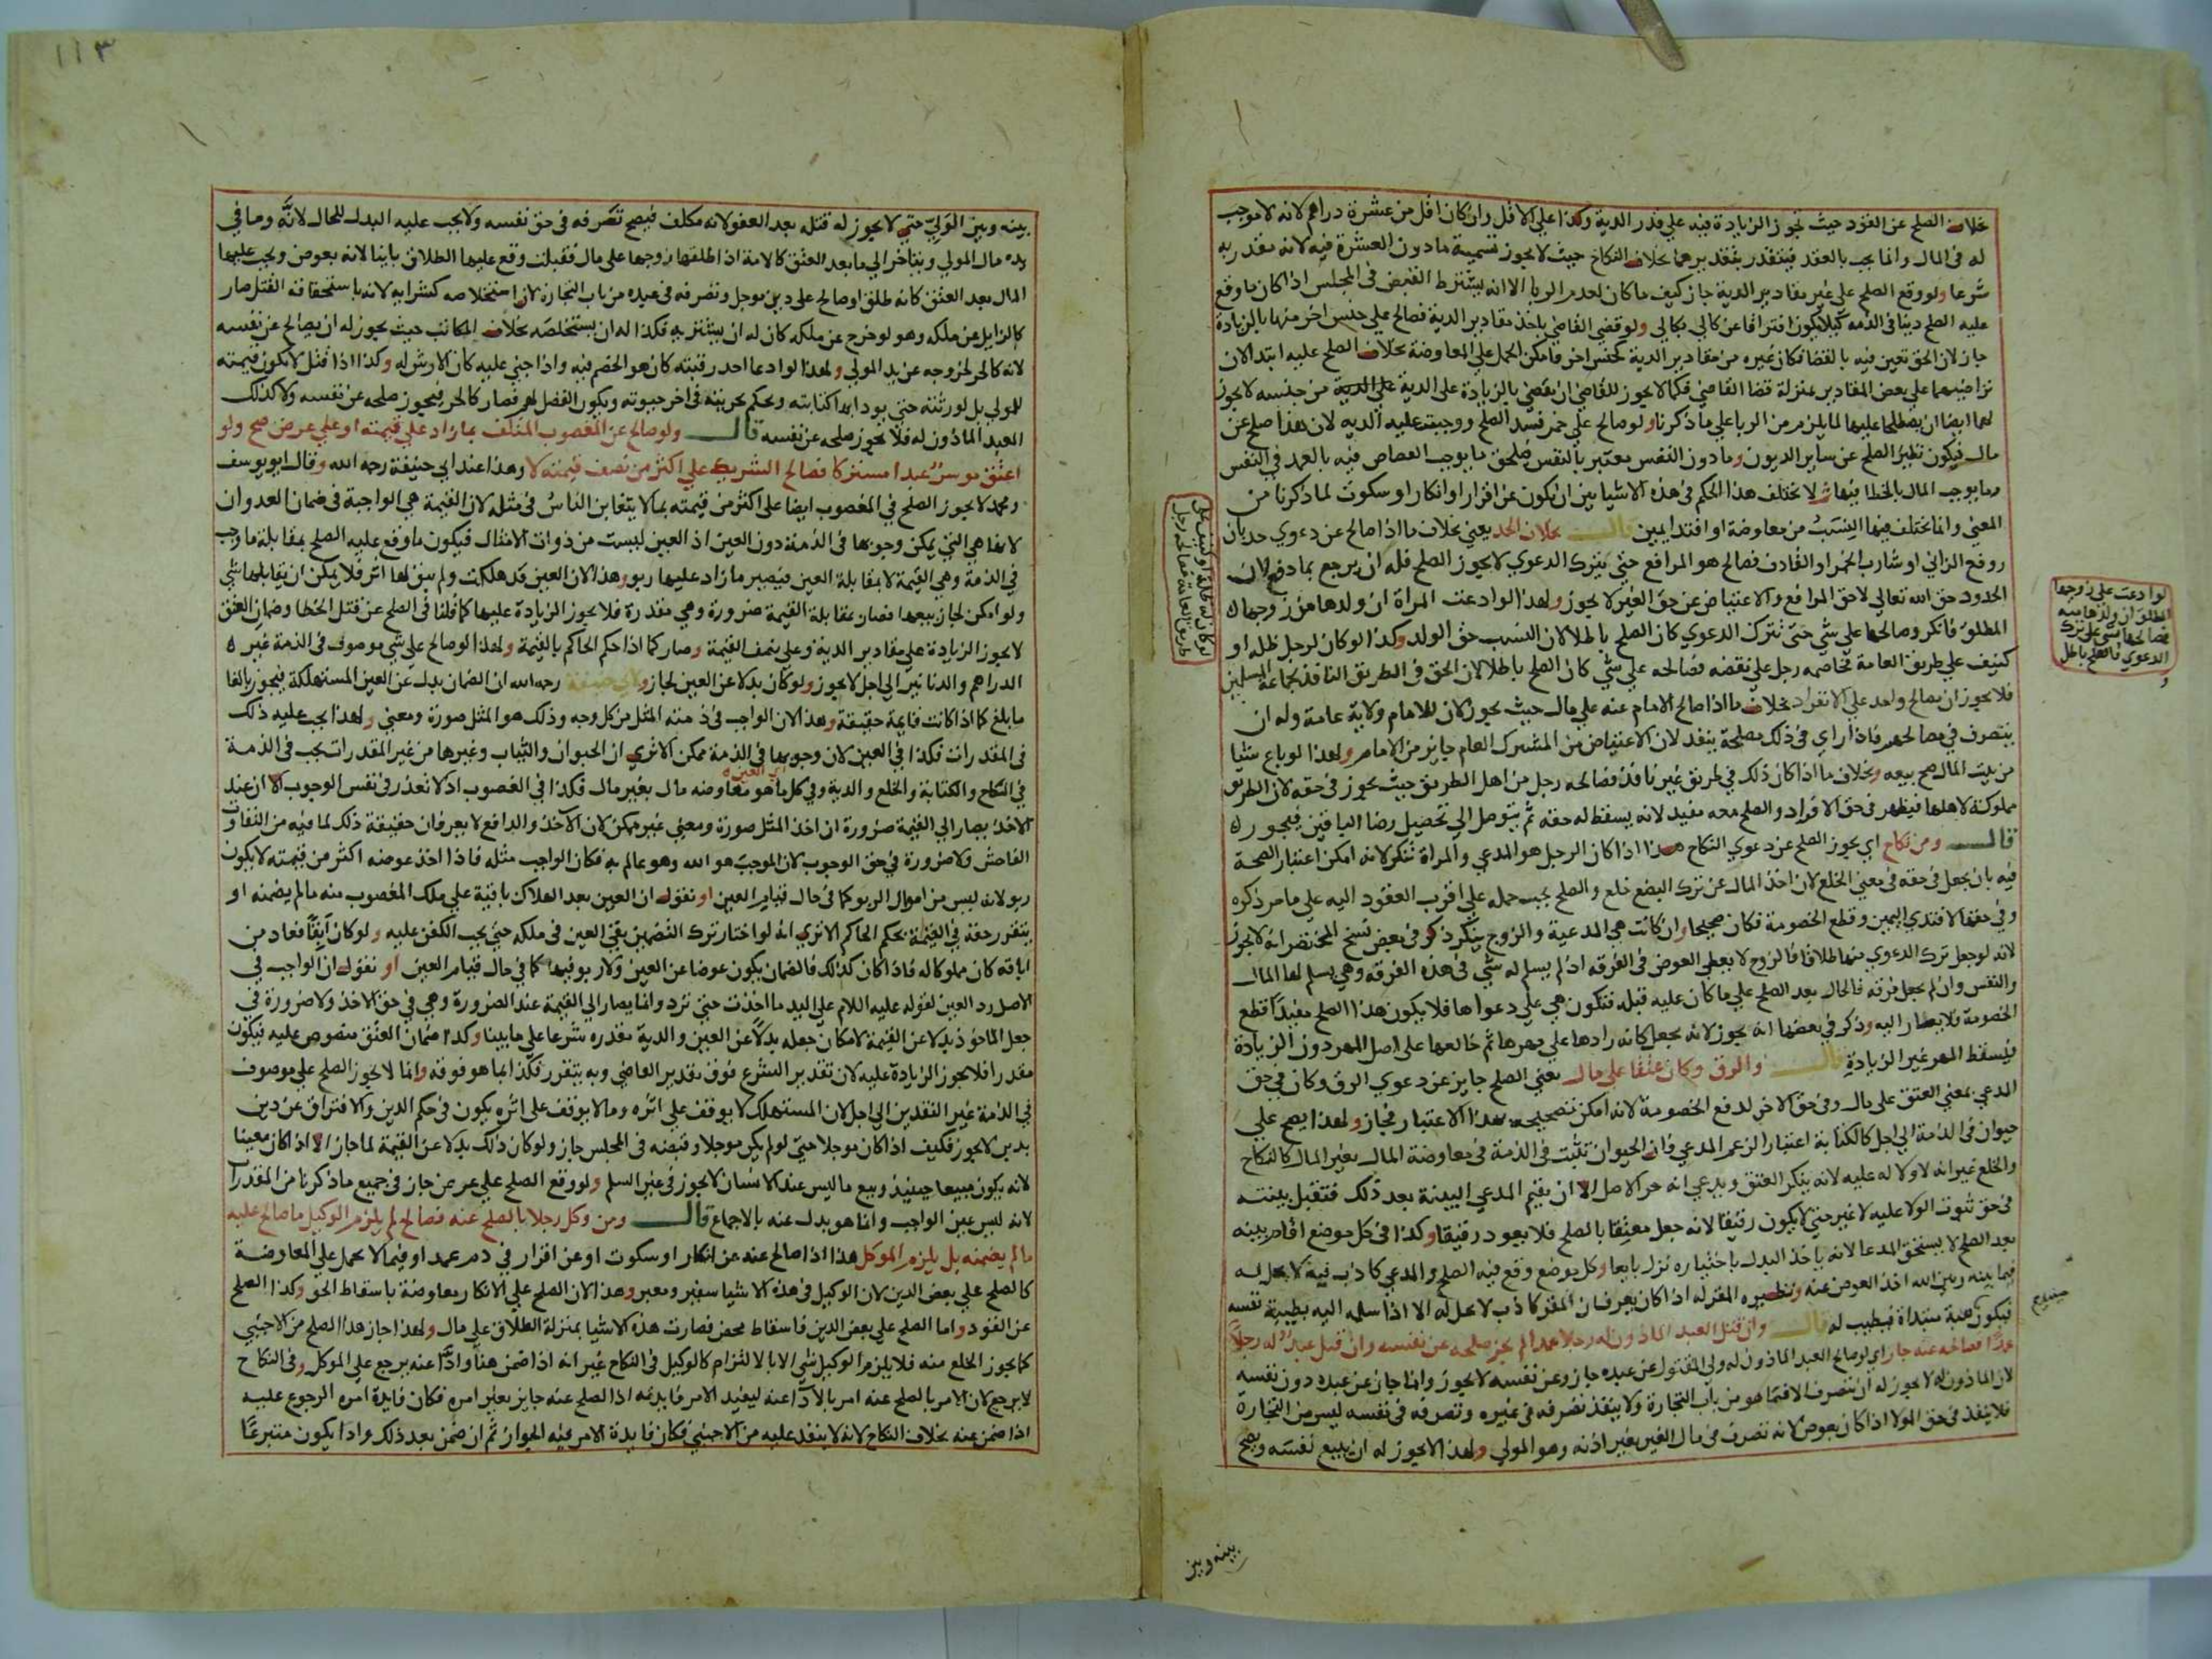 بخلاف الصلح عن القود حيث تجوز الزيادة فيه علي قدر الدية وكذا علي الاقل وان كان اقل من عشرة دراهم لانه لا موجب
له في المال وانما يجب بالعقد فيتقدر بتقديرهما بخلاف النكاح حيث لا يجوز تسمية ما دون العشرة فيه لانه مقدر به
شرعا ولو وقع الصلح علي غير مقادير الدية جاز كيف ما كان لعدم الربا الا انه يشترط القبض في المجلس اذا كان ما وقع
عليه الصلح دينا في الذمه كيلا يكون افتراقا عن كالي بكالي ولو قضي القاضي باحد مقادير الدية فصالح علي جنس اخر منها بالزيادة
جاز لان الحق تعين فيه بالقضا فكان غيره من مقادير الدية كجنس اخر فامكن الحمل علي المعاوضة بخلاف الصلح عليه ابتدا لان
تراضيهما علي بعض المقادير بمنزلة قضا القاضي فكما لا يجوز للقاضي ان يقضي بالزيادة علي الدية من جنسه لا يجوز
لهما ايضا ان يصطلحا عليها لما يلزم من الربا علي ما ذكرنا ولو صالح علي خمر فسد الصلح ووجبت عليه الديه لان هذا صلح عن
مال فيكون نظير الصلح عن ساير الديون وما دون النفس معتبر بالنفس فلحق ما يوجب القصاص فيه بالعمد في النفس
وما يوجب المال بالخطا فيها ثم لا يختلف هذا الحكم في هذه الاشيا بين ان يكون عن اقرار او انكار او سكوت لما ذكرنا من
المعني وانما تختلف فيها النسب من معاوضة او افتدا يمين قال بخلاف الحد يعني بخلاف ما اذا صالح عن دعوي حد بان
رفع الزاني او شارب الخمر او القاذف فصالح هو المرافع حتي يترك الدعوي لا يجوز الصلح فله ان يرجع بما دفع لان
الحدود حق الله تعالي لا حق المرافع والاعتياض عن حق الغير لا يجوز ولهذا لو ادعت المراة ان ولدها من زوجها
المطلق فانكر وصالحها علي شي حتي تترك الدعوي كان الصلح باطلا لان النسب حق الولد وكذا لو كان لرجل ظله او
كنيف علي طريق العامة فخاصمه رجل علي نقضه فصالحه علي شي كان الصلح باطلا لان الحق في الطريق النافذ لجماعة المسلمين
فلا يجوز ان يصالح واحد علي الانفراد بخلاف ما اذا صالح الامام عنه علي مال حيث يجوز لان للامام ولاية عامة وله ان
يتصرف في مصالحهم فاذا راي في ذلك مصلحة ينفذ لان الاعتياض من المشترك العام جايز من الامام ولهذا لو باع شيا
من بيت المال صح بيعه وبخلاف ما اذا كان ذلك في طريق غير نافذ فصالحه رجل من اهل الطريق حيث يجوز في حقه لان الطريق
مملوكة لاهلها فيظهر في حق الافراد والصلح معه مفيد لانه يسقط له حقه ثم يتوصل الي تحصيل رضا الباقين فيجوز
قال ومن نكاح اي يجوز الصلح عن دعوي النكاح هذا اذا كان الرجل هو المدعي والمراة تنكر لانه امكن اعتبار الصحة
فيه بان يجعل في حقه في معني الخلع لان اخذ المال عن ترك البضع خلع والصلح يجب حمله علي اقرب العقود اليه علي ما مر ذكره
وفي حقها لافتدي اليمين وقطع الخصومة فكان صحيحا وان كانت هي المدعية والزوج ينكر ذكر في بعض نسخ المختصر انه لا يجوز
لانه لو جعل ترك الدعوي منها طلاقا فالزوج لا يعطي العوض في الفرقه اذ لم يسلم له شي في هذه الفرقه وهي يسلم لها المال
والنفس وان لم يجعل فرقه فالحال بعد الصلح علي ما كان عليه قبله فتكون هي علي دعواها فلا يكون هذا الصلح مفيدا قطع
الخصومة فلا يصار اليه وذكر في بعضها انه يجوز لانه يجعل كانه زادها علي مهرها ثم خالعها علي اصل المهر دون الزيادة
فيسقط المهر غير الزيادة قال والرق وكان عتقا علي مال يعني الصلح جايز عن دعوي الرق وكان في حق
المدعي بمعني العتق علي مال وفي حق الاخر لدفع الخصومة لانه امكن تصحيحه بهذا الاعتبار فجاز ولهذا يصح علي
حيوان في الذمة الي اجل كالكتابة اعتبارا لزعم المدعي فان الحيوان تثبت في الذمة في معاوضة المال بغير المال كالنكاح
والخلع غير انه لا ولا له عليه لانه ينكر العتق ويدعي انه حر الاصل الا ان يقيم المدعي البينة بعد ذلك فتقبل بينته
في حق ثبوت الولا عليه لا غير حتي لا يكون رقيقا لانه جعل معتقا بالصلح فلا يعود رقيقا وكذا في كل موضع اقام بينه
بعد الصلح لا يستحق المدعا لانه ياخذ البدل باختياره نزل بايعا وكل موضع وقع فيه الصلح والمدعي كاذب فيه لا يحل له
فيما بينه وبين الله اخذ العوض عنه ونظيره المقر له اذا كان يعرف ان المقر كاذب لا يحل له الا اذا سلمه اليه بطيبة نفسه
فيكون هبة مبتداة فيطيب له قال وان قتل العبد الماذون له رجلا عمدا لم يجز صلحه عن نفسه وان قتل عبد له رجلا
عمدا فصالحه عنه جاز اي لو صالح العبد الماذون له ولي المقتول عن عبده جاز وعن نفسه لا يجوز وانما جاز عن عبده دون نفسه
لان الماذون له لا يجوز له ان يتصرف الا فيما هو من باب التجارة ولا ينفذ تصرفه في غيره وتصرفه في نفسه ليس من التجارة
فلا ينفذ في حق المولا اذا كان بعوض لانه تصرف في مال الغير بغير اذنه وهو المولي ولهذا لا يجوز له ان يبيع نفسه ويصح
لو ادعت علي زوجها
المطلق ان ولدها منه
فصالحها بشي علي ترك
الدعوي فالصلح باطل
بينه وبين
١١٣
بينه وبين الولي حتي لا يجوز له قتله بعد العفو لانه مكلف فيصح تصرفه في حق نفسه ولا يجب عليه البدل للحال لانه وما في
يده مال المولي ويتاخر الي ما بعد العتق كالامة اذا طلقها زوجها علي مال فقبلت وقع عليها الطلاق باينا لانه بعوض ويجب عليها
المال بعد العتق كانه طلق او صالح علي دين موجل وتصرفه في عبده من باب التجارة لان استخلاصه كشرايه لانه باستحقاقه القتل صار
كالزايل عن ملكه وهو لو خرج عن ملكه كان له ان يشتريه فكذا له ان يستخلصه بخلاف المكاتب حيث يجوز له ان يصالح عن نفسه
لانه كالحر لخروجه عن يد المولي ولهذا لو ادعا احد رقبته كان هو الخصم فيه واذا جني عليه كان الارش له وكذا اذا قتل لا تكون قيمته
للمولي بل لورثته حتي يودا بها كتابته ويحكم بحريته في اخر حيوته ويكون الفضل لهم فصار كالحر فيجوز صلحه عن نفسه ولا كذلك
العبد الماذون له فلا يجوز صلحه عن نفسه قال ولو صالح عن المغصوب المتلف بما زاد علي قيمته او علي عرض صح ولو
اعتق موسر عبدا مشتركا فصالح الشريك علي اكثر من نصف قيمته لا وهذا عند ابي حنيفة رحمه الله وقال ابو يوسف
ومحمد لا يجوز الصلح في المغصوب ايضا علي اكثر من قيمته بما لا يتغابن الناس في مثله لان القيمة هي الواجبة في ضمان العدوان
لانها هي التي يمكن وجوبها في الذمة دون العين اذ العين ليست من ذوات الامثال فيكون ما وقع عليه الصلح بمقابلة ما وجب
في الذمة وهي القيمة لا بمقابلة العين فيصير ما زاد عليها ربو وهذا لان العين قد هلكت ولم يبق لها اثر فلا يمكن ان يقابلها شي
ولو امكن لجاز بيعها فصار بمقابلة القيمة ضرورة وهي مقدرة فلا يجوز الزيادة عليها كما قلنا في الصلح عن قتل الخطا وضمان العتق
لا يجوز الزيادة علي مقادير الدية وعلي نصف القيمة وصار كما اذا حكم الحاكم بالقيمة ولهذا لو صالح علي شي موصوف في الذمة غير
الدراهم والدنانير الي اجل لا يجوز ولو كان بدلا عن العين لجاز ولابي حنيفة رحمه الله ان الضمان بدل عن العين المستهلكة فيجوز بالغا
ما بلغ كما اذا كانت قايمة حقيقة وهذا لان الواجب في ذمته المثل من كل وجه وذلك هو المثل صورة ومعني ولهذا يجب عليه ذلك
في المقدرات فكذا في العين لان وجوبها في الذمة ممكن الا تري ان الحيوان والثياب وغيرها من غير المقدرات يجب في الذمة
في النكاح والكتابة والخلع والدية وفي كل ما هو معاوضه مال بغير مال فكذا في الغصوب اذ لا تعذر في نفس الوجوب الا ان عند
الاخذ يصار الي القيمة ضرورة ان اخذ المثل صورة ومعني غير ممكن لان الآخذ والدافع لا يعرفان حقيقة ذلك لما فيه من التفاوت
الفاحش ولا ضرورة في حق الوجوب لان الموجب هو الله وهو عالم به فكان الواجب مثله فاذا اخذ عوضه اكثر من قيمته لا يكون
ربو لانه ليس من اموال الربو كما في حال قيام العين او نقول ان العين بعد الهلاك باقية علي ملك المغصوب منه ما لم يضمنه او
يتقرر حقه في القيمة بحكم الحاكم الا تري انه لو اختار ترك التضمين بقي العين في ملكه حتي يجب الكفن عليه ولو كان آبقا فعاد من
اباقه كان مملوكا له فاذا كان كذلك فالضمان يكون عوضا عن العين ولا ربو فيها كما في حال قيام العين او نقول ان الواجب في
الاصل رد العين لقوله عليه اللام علي اليد ما اخذت حتي ترد وانما يصار الي القيمة عند الضرورة وهي في حق الاخذ ولا ضرورة في
جعل الماخوذ بدلا عن القيمة لامكان جعله بدلا عن العين والدية مقدره شرعا علي ما بينا وكذا ضمان العتق منصوص عليه فيكون
مقدرا فلا يجوز الزيادة عليه لان تقدير الشرع فوق تقدير القاضي وبه يتقرر فكذا بما هو فوقه وانما لا يجوز الصلح علي موصوف
في الذمة غير النقدين الي اجل لان المستهلك لا يوقف علي اثره وما لا يوقف علي اثره يكون في حكم الدين والافتراق عن دين
بدين لا يجوز فكيف اذا كان موجلا حتي لو لم يكن موجلا وقبضه في المجلس جاز ولو كان ذلك بدلا عن القيمة لما جاز الا اذا كان معينا
لانه يكون مبيعا حينيذ وبيع ما ليس عند الانسان لا يجوز في غير السلم ولو وقع الصلح علي عرض جاز في جميع ما ذكرنا من المقدرات
لانه ليس عين الواجب وانما هو بدل عنه بالاجماع قال ومن وكل رجلا بالصلح عنه فصالح لم يلزم الوكيل ما صالح عليه
ما لم يضمنه بل يلزم الموكل هذا اذا صالح عنه عن انكار او سكوت او عن اقرار في دم عمد او فيما لا يحمل علي المعاوضة
كالصلح علي بعض الدين لان الوكيل في هذه الاشيا سفير ومعبر وهذا لان الصلح علي الانكار معاوضة باسقاط الحق وكذا الصلح
عن القود واما الصلح علي بعض الدين فاسقاط محض فصارت هذه الاشيا بمنزلة الطلاق علي مال ولهذا جاز هذا الصلح من الاجنبي
كما يجوز الخلع منه فلا يلزم الوكيل شي الا بالالتزام كالوكيل في النكاح غير انه اذا ضمن هنا وادا عنه يرجع علي الموكل وفي النكاح
لا يرجع لان الامر بالصلح عنه امر بالادآ عنه ليفيد الامر فايدته اذ الصلح عنه جايز بغير امره فكان فايدة امره الرجوع عليه
اذا ضمن عنه بخلاف النكاح لانه لا ينفذ عليه من الاجنبي فكان فايدة الامر فيه الجواز ثم ان ضمن بعد ذلك وادا يكون متبرعا